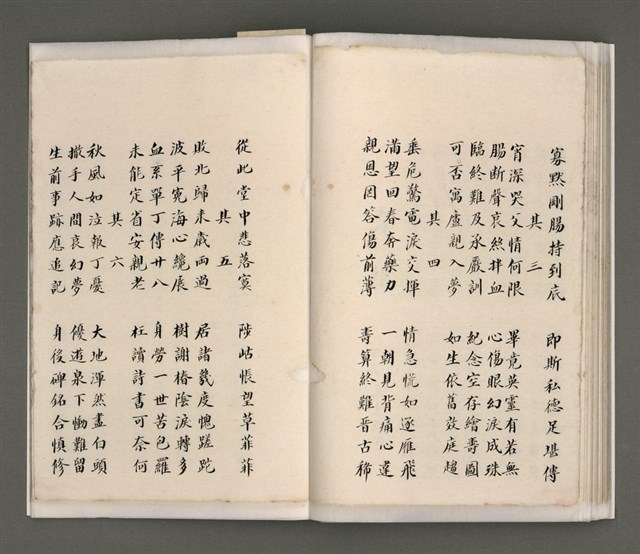 寡默剛腸持到底　即斯私德足堪傳
其三
宵深哭父情何限　畢竟英靈有若無
腸斷聲哀終拌血　心傷眼幻淚成珠
臨終難及承嚴訓　紀念空存繪壽圖
可否寓廬親入夢　如生依舊效庭趨
其四
垂危驚電淚交揮　情急慌如逐雁飛
滿望回春奔藥力　一朝見背痛心違
親恩罔答傷前薄　壽算終難晉古稀
從此堂中悲落寞　陟岵悵望草菲菲
其五
敗北歸來歲兩過　居諸幾度愧蹉跎
波平宛海心纔展　樹謝椿陰淚轉多
血系單丁傳廿八　身勞一世苦包羅
未能定省安親老　枉讀詩書可奈何
其六
秋風如泣報丁憂　大地渾然盡白頭
撒手人間哀幻夢　優遊泉下慟難留
生前事跡應追記　身後碑銘合慎修